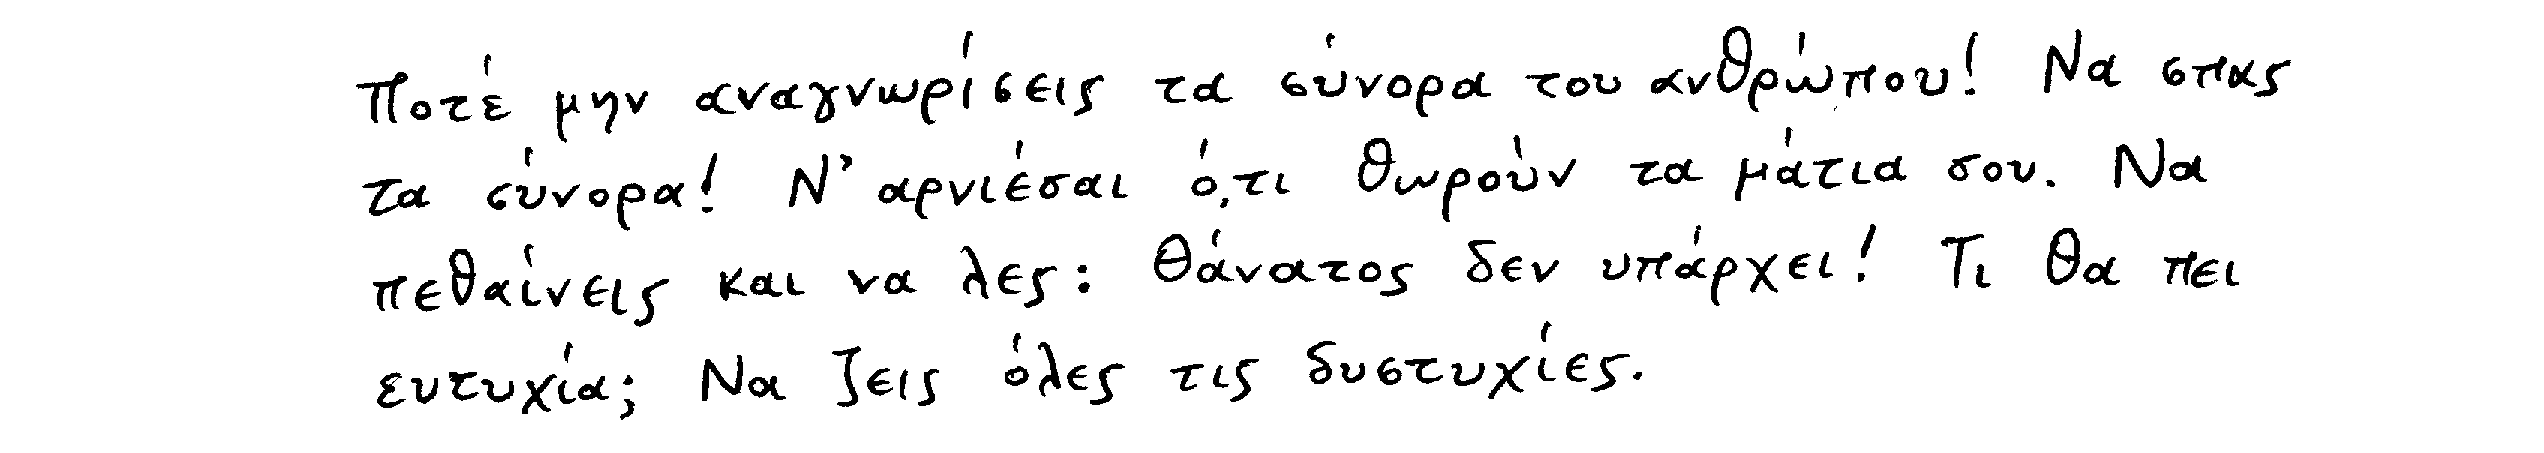 Ποτέ μην αναγνωρίσεις τα σύνορα του ανθρώπου! Να σπας
τα σύνορα! Ν' αρνιέσαι ό,τι θωρούν τα μάτια σου. Να
πεθαίνεις και να λες: Θάνατος δεν υπάρχει! Τι θα πει
ευτυχία; Να ζεις όλες τις δυστυχίες.